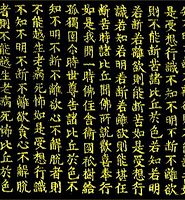 則不能斷苦諸比丘於色若知若明
若斷若離欲則能斷苦如是受想行
識若知若明若斷若離欲則能堪任
斷苦時諸比丘聞佛所說歡喜奉行
如是我聞一時佛住舍衛國祇樹給
孤獨園爾時世尊告諸比丘於色不
知不明不斷不離欲心不解脫者則
不能越生老病死怖如是受想行識
不知不明不斷不離欲心不解脫
者則不能越生老病死怖比丘於色